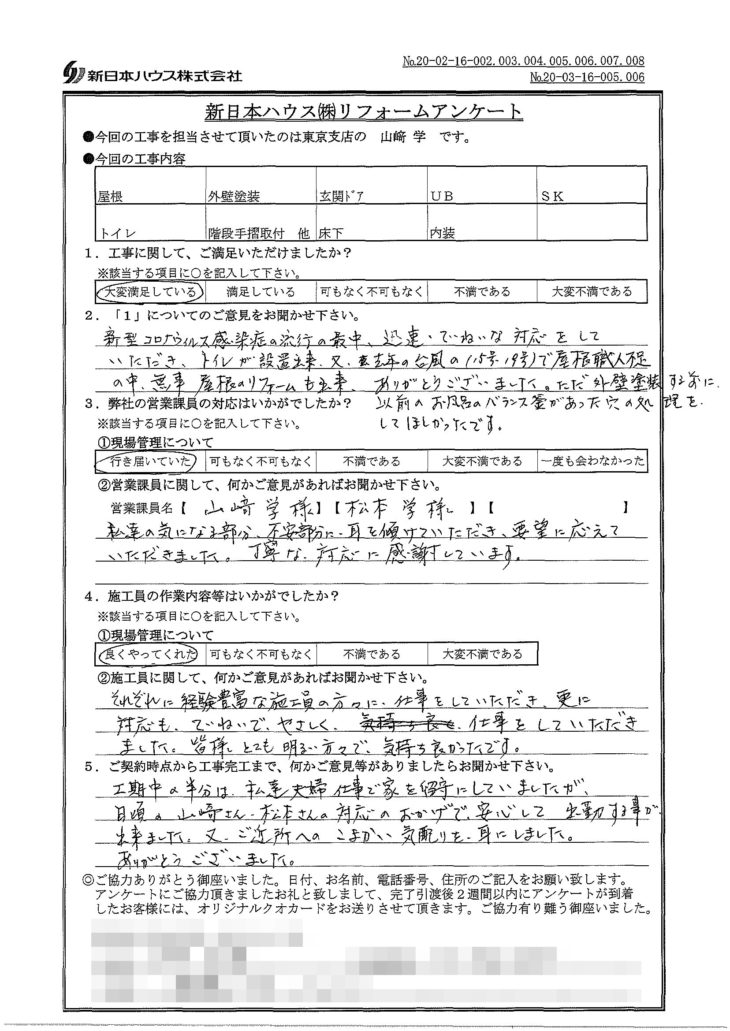 新日本ハウス株式会社
№20-02-16-002.003.004.005.006.007.008
№20-03-16-005.006
新日本ハウス㈱リフォームアンケート
●今回の工事を担当させて頂いたのは東京支店の 山﨑 学 です。
●今回の工事内容
屋根 外壁塗装 玄関ﾄﾞｱ UB SK
トイレ 階段手摺取付 他 床下 内装
1．工事に関して、ご満足いただけましたか？
※該当する項目に○を記入して下さい。
大変満足している 満足している 可もなく不可もなく 不満である 大変不満である
2．「1」についてのご意見をお聞かせ下さい。
新型コロナウィルス感染症の流行の最中、迅速・ていねいな対応をして
いただき、トイレが設置出来、又、去年の台風の(15号・19号)で屋根職人不足
の中、無事 屋根のリフォームも出来、ありがとうございました。ただ外壁塗装する前に、
以前のお風呂のバランス釜があった穴の処理を
してほしかったです。
3．弊社の営業課員の対応はいかがでしたか？
※該当する項目に○を記入して下さい。
①現場管理について
行き届いていた 可もなく不可もなく 不満である 大変不満である 一度も会わなかった
②営業課員に関して、何かご意見があればお聞かせ下さい。
営業課員名【 山﨑 学 様 】【 松本 学 様 】【 】
私達の気になる部分、不安部分に、耳を傾けていただき、要望に応えて
いただきました。丁寧な対応に感謝しています。
4．施工員の作業内容等はいかがでしたか？
※該当する項目に○を記入して下さい。
①現場管理について
良くやってくれた 可もなく不可もなく 不満である 大変不満である
②施工員に関して、何かご意見があればお聞かせ下さい。
それぞれに経験豊富な施工員の方々に、仕事をしていただき、更に
対応も、ていねいで、やさしく、気持ち良く、仕事をしていただき
ました。皆様 とても明るい方々で、気持ち良かったです。
5．ご契約時点から工事完工まで、何かご意見等がありましたらお聞かせ下さい。
工期中の半分は、私達夫婦 仕事で家を留守にしていましたが、
日頃の山﨑さん・松本さんの対応のおかげで、安心して 出勤する事が
出来ました。又、ご近所へのこまかい気配りを、耳にしました。
ありがとうございました。
◎ご協力ありがとう御座いました。日付、お名前、電話番号、住所のご記入をお願い致します。
アンケートにご協力頂きましたお礼と致しまして、完了引渡後２週間以内にアンケートが到着
したお客様には、オリジナルクオカードをお送りさせて頂きます。ご協力有り難う御座いました。